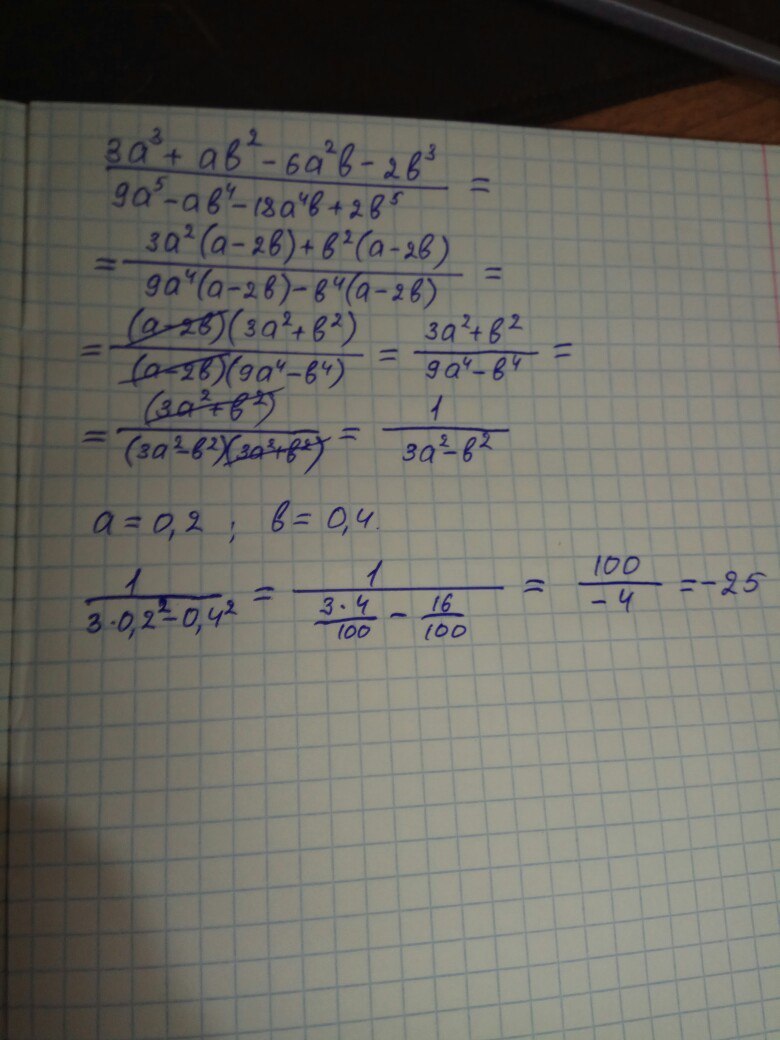 (3a³ + aв² - 6a²в - 2в³)/(9a⁵ - aв⁴ - 18a⁴в + 2в⁵) =
= (3a²(a-2в) + в²(a-2в))/(9a⁴(a-2в) - в⁴(a-2в)) =
= ((a-2в)(3a²+в²))/((a-2в)(9a⁴-в⁴)) = (3a²+в²)/(9a⁴-в⁴) =
= (3a²+в²)/((3a²-в²)(3a²+в²)) = 1/(3a²-в²)
a = 0,2 ; в = 0,4.
1/(3·0,2²-0,4²) = 1/((3·4)/100 - 16/100) = 100/(-4) = -25